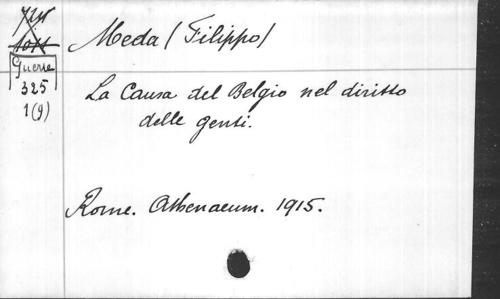 Meda (Filippo)
Guerre
325
1(9)
La Causa del Belgio nel diritto
delle genti.
Rome. Athenaeum. 1915.